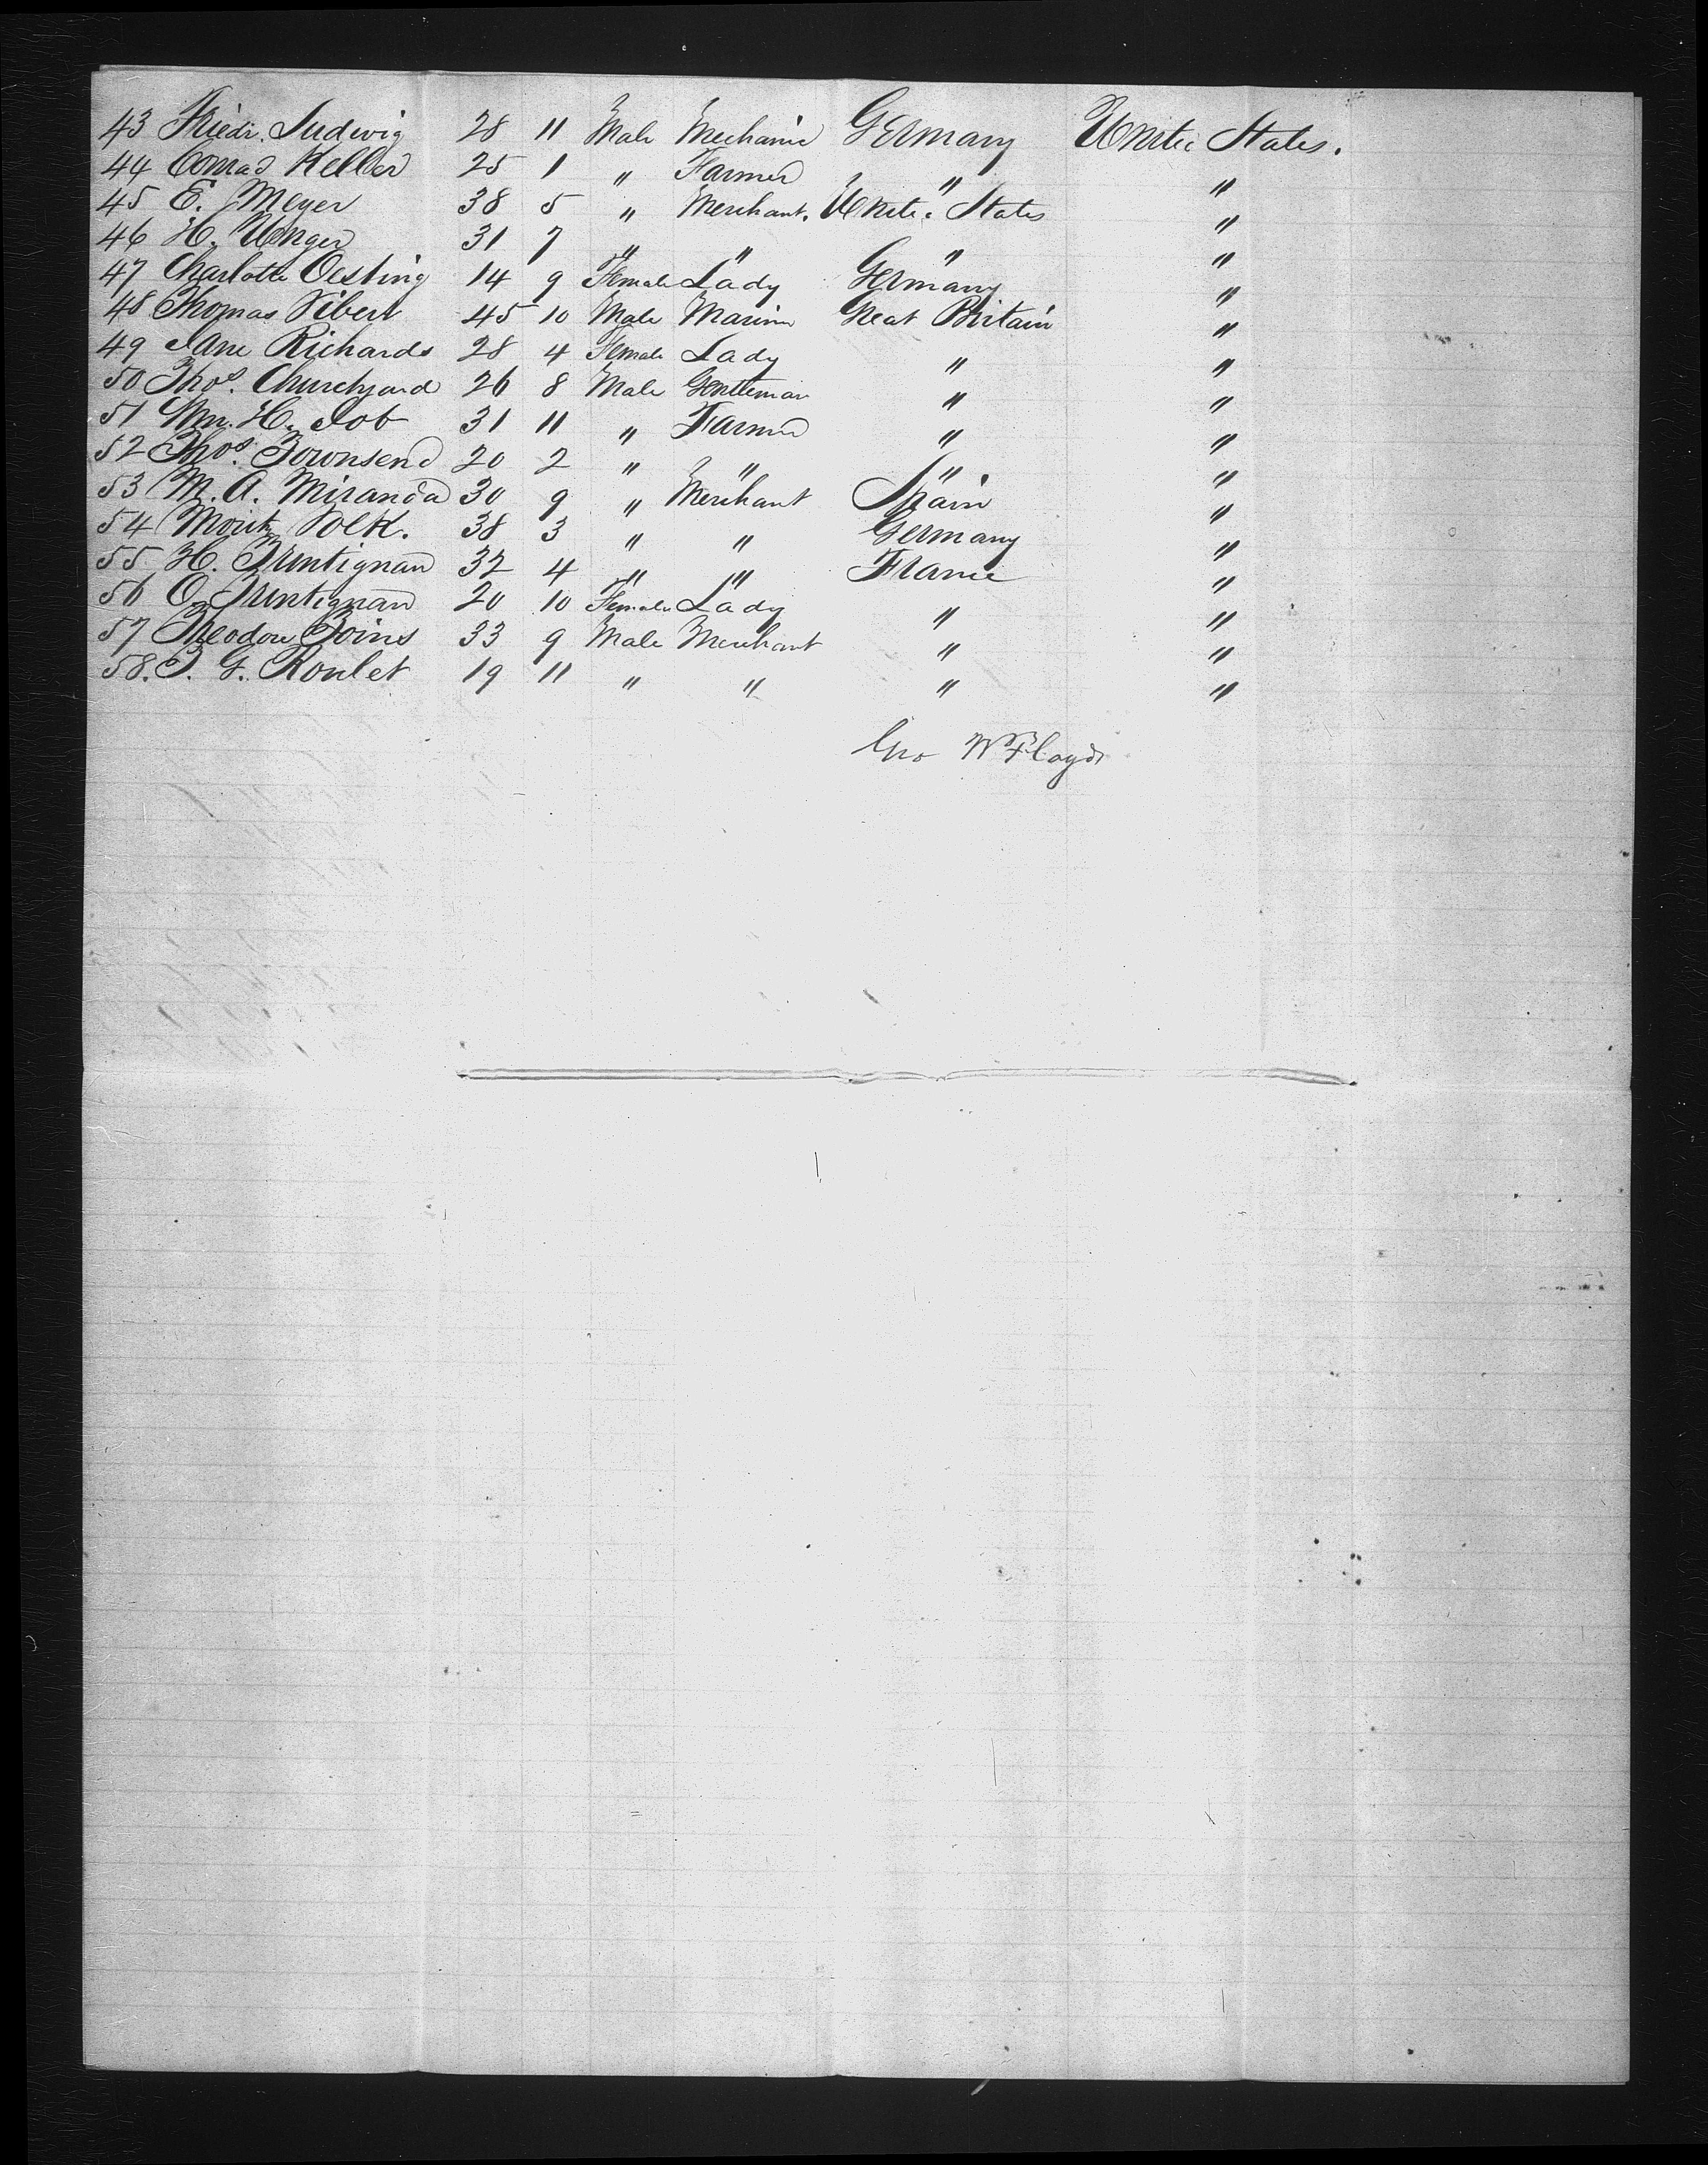 43 Friedr. Ludwig 28 11 Male Mechanic Germany United States.
44 Conrad Keller 25 1 " Farmer " "
45 E. Meyer 38 5 " Merchant. United States "
46 H. Unger 31 7 " " " "
47 Charlotte Oesting 14 9 Female Lady Germany "
48 Thomas Vibert 45 10 Male Marine Great Britain "
49 Jane Richards 28 4 Female Lady " "
50 Thos. Churchyard 26 8 Male Gentleman " "
51 Wm. H. Job 31 11 " Farmer " "
52 Thos. Townsend 20 2 " " " "
53 M. A. Miranda 30 9 " Merchant Spain "
54 Moritz Volk. 38 3 " " Germany "
55 H. Truntignan 32 4 " " France "
56 O. Truntignan 20 10 Female Lady " "
57 Theodore Boins 33 9 Male Merchant " "
58. G. Roulet 19 11 " " " "
Geo W Floyd